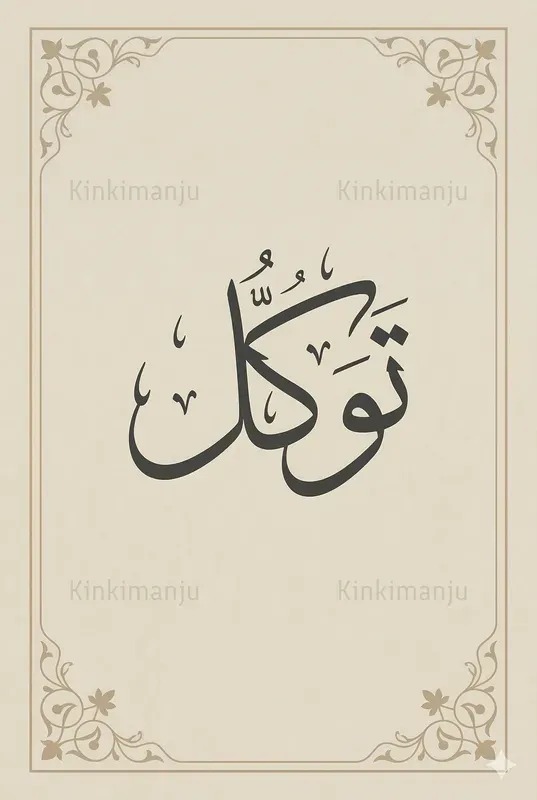 Kinkimanju Kinkimanju
تَوَكُّل
Kinkimanju Kinkimanju